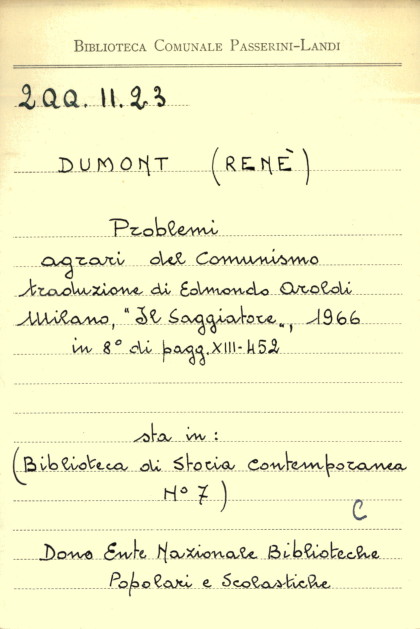 BIBLIOTECA COMUNALE PASSERINI-LANDI
2QQ. 11. 23
DUMONT (RENÈ)
Problemi
agrari del Comunismo
traduzione di Edmondo Aroldi
Milano, "Il Saggiatore„, 1966
in 8° di pagg. XIII-452
sta in:
(Biblioteca di Storia Contemporanea
N° 7)
C
Dono Ente Nazionale Biblioteche
Popolari e Scolastiche